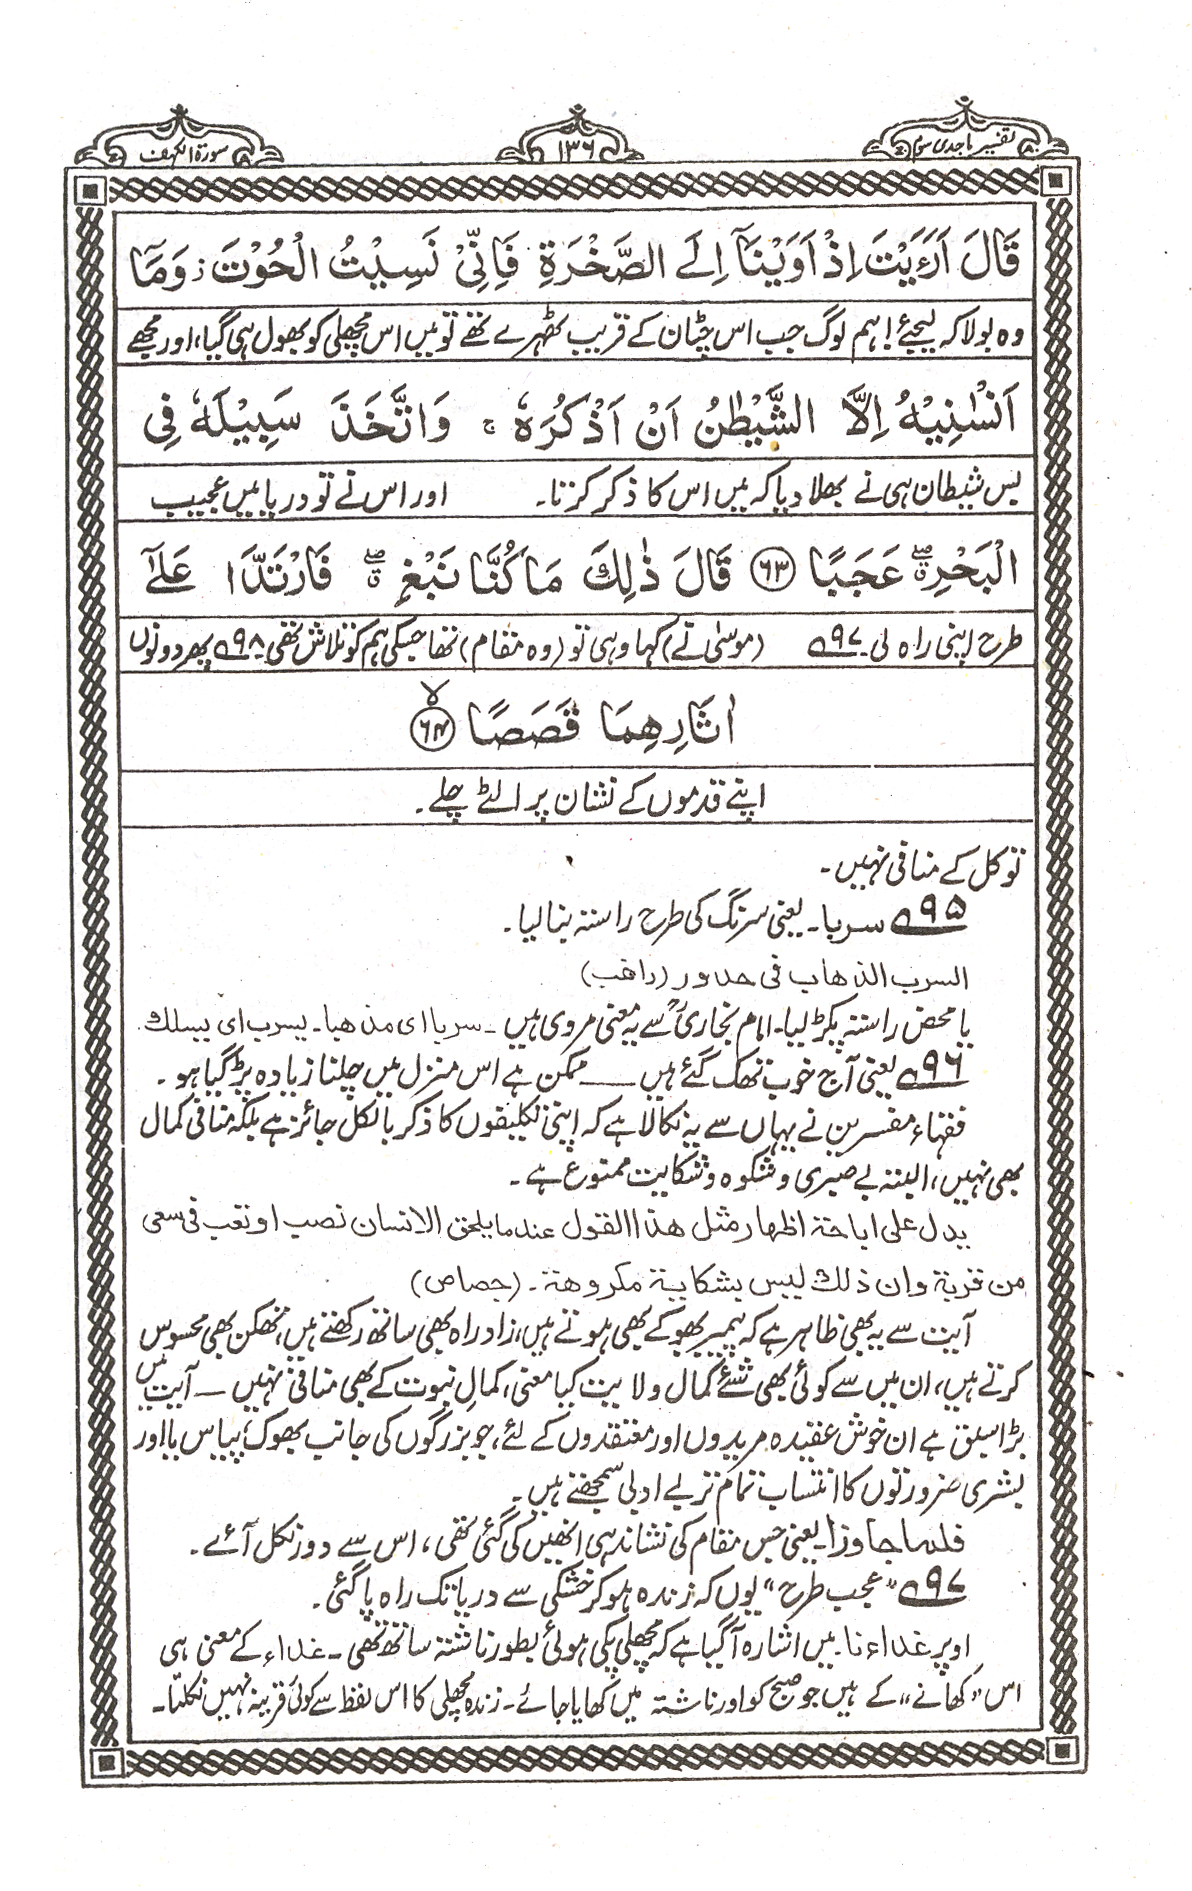 تفسیر ماجدی سوم
۱۳۶
سورة الکہف
قَالَ اَرَءَيْتَ اِذْ اَوَيْنَآ اِلَى الصَّخْرَةِ فَاِنِّیْ نَسِيْتُ الْحُوْتَ ز وَمَآ
وہ بولا کہ لیجئے! ہم لوگ جب اس چٹان کے قریب ٹھہرے تھے تو میں اس مچھلی کو بھول ہی گیا، اور مجھے
اَنْسٰنِيْهُ اِلَّا الشَّيْطٰنُ اَنْ اَذْكُرَهٗ ۚ وَاتَّخَذَ سَبِيْلَهٗ فِی
بس شیطان ہی نے بھلا دیا کہ میں اس کا ذکر کرتا۔ اور اس نے تو دریا میں عجیب
الْبَحْرِ ۖق عَجَبًا ﴿۶۳﴾ قَالَ ذٰلِكَ مَا كُنَّا نَبْغِ ۖق فَارْتَدَّا عَلٰٓى
طرح اپنی راہ لی ۹۷؎ (موسیٰ نے) کہا وہی تو (وہ مقام) تھا جسکی ہم کو تلاش تھی ۹۸؎ پھر دونوں
اٰثَارِهِمَا قَصَصًا ﴿۶۴﴾ ۙ
اپنے قدموں کے نشان پر الٹے چلے۔
توکل کے منافی نہیں۔
۹۵؎ سربا۔ یعنی سرنگ کی طرح راستہ بنا لیا۔
السرب الذھاب فی حدور (راغب)
یا محض راستہ پکڑ لیا۔ امام بخاریؒ سے یہ معنی مروی ہیں۔ سربا ای مذھبا۔ یسرب ای یسلک۔
۹۶؎ یعنی آج خوب تھک گئے ہیں —— ممکن ہے اس منزل میں چلنا زیادہ پڑ گیا ہو۔
فقہاء مفسرین نے یہاں سے یہ نکالا ہے کہ اپنی تکلیفوں کا ذکر بالکل جائز ہے بلکہ منافی کمال
بھی نہیں، البتہ بے صبری و شکوہ و شکایت ممنوع ہے۔
یدل علی اباحۃ اظھار مثل ھذا القول عندما یلحق الانسان نصب او تعب فی سعی
من قربۃ وان ذلک لیس بشکایۃ مکروھۃ۔ (جصاص)
آیت سے یہ بھی ظاہر ہے کہ پیمبر بھوکے بھی ہوتے ہیں، زاد راہ بھی ساتھ رکھتے ہیں، تھکن بھی محسوس
کرتے ہیں، ان میں سے کوئی بھی شئے کمال ولایت کیا معنی، کمال نبوت کے بھی منافی نہیں — آیت میں
بڑا سبق ہے ان خوش عقیدہ مریدوں اور معتقدوں کے لئے، جو بزرگوں کی جانب بھوک، پیاس یا اور
بشری ضرورتوں کا انتساب تمام تر بے ادبی سمجھتے ہیں۔
فلما جاوزا۔ یعنی جس مقام کی نشاندہی انھیں کی گئی تھی، اس سے دور نکل آئے۔
۹۷؎ "عجب طرح" یوں کہ زندہ ہو کر خشکی سے دریا تک راہ پا گئی۔
اوپر غداءنا۔ میں اشارہ آ گیا ہے کہ مچھلی پکی ہوئی بطور ناشتہ ساتھ تھی۔ غداء کے معنی ہی
اس "کھانے" کے ہیں جو صبح کو اور ناشتہ میں کھایا جائے۔ زندہ مچھلی کا اس لفظ سے کوئی قرینہ نہیں نکلتا۔